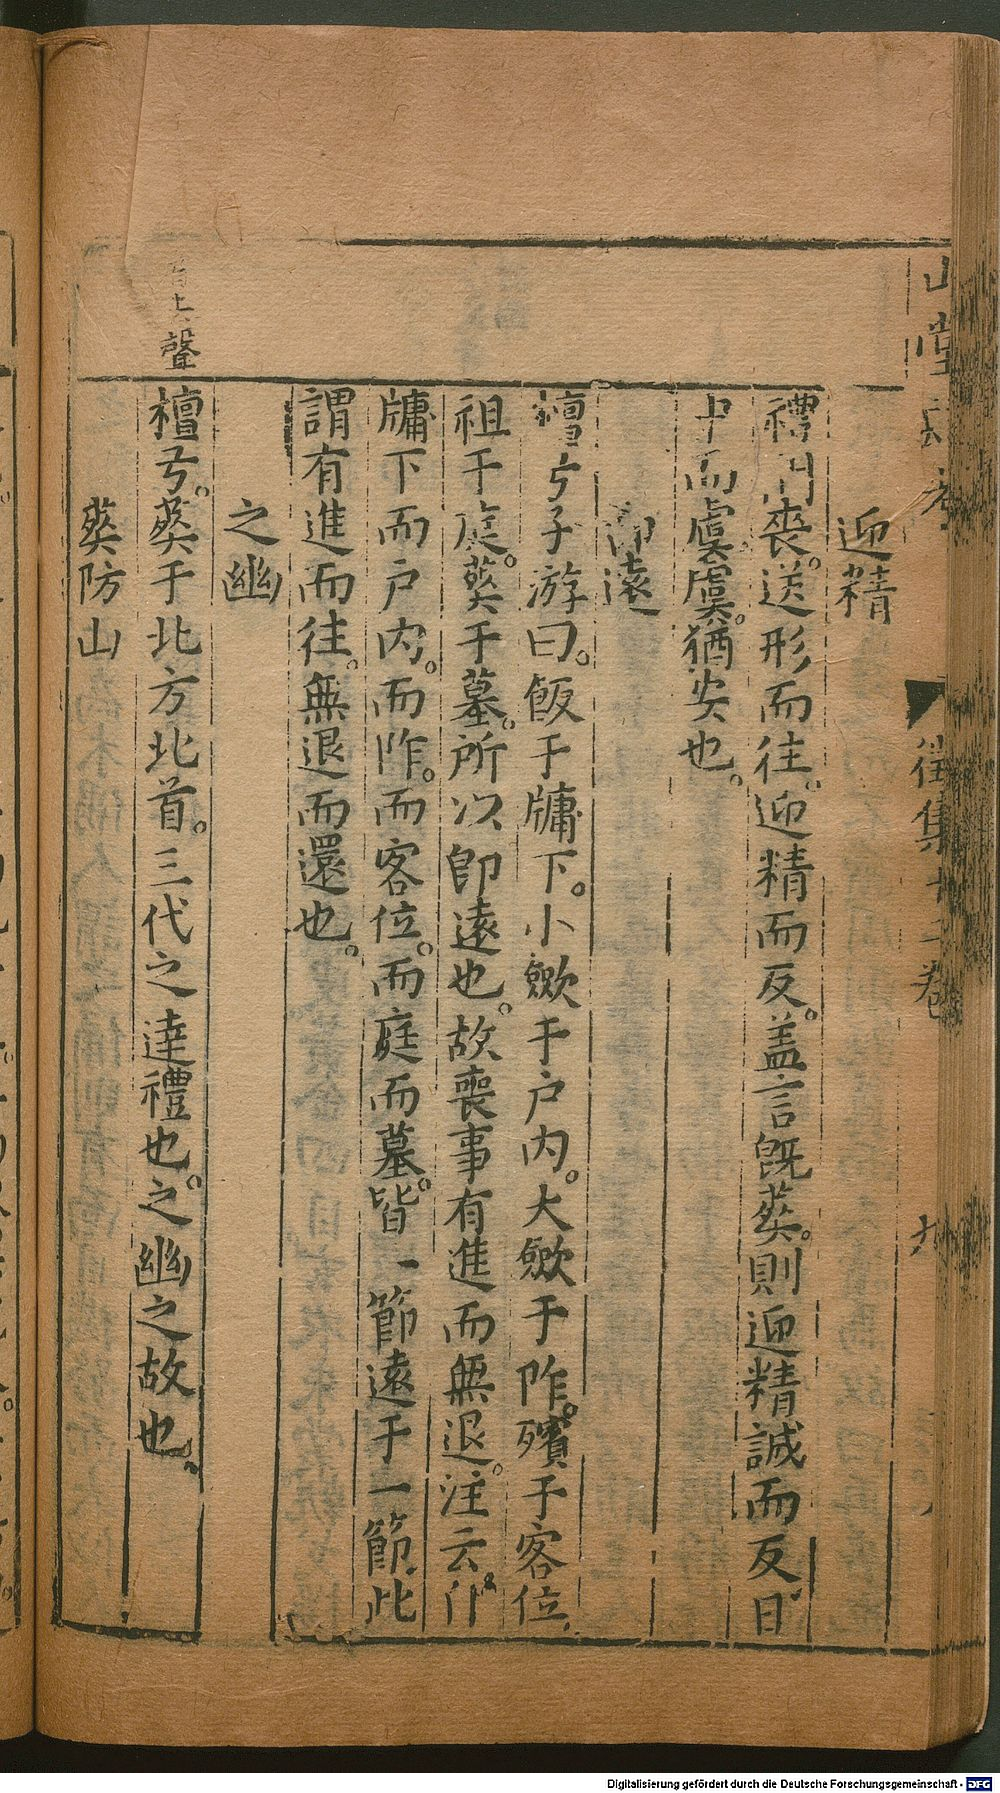 山堂肆考
徵集十二卷
迎精
禮問喪。送形而往。迎精而反。蓋言既葬。則迎精誠而反。日
中而虞。虞。猶安也。
即遠
檀弓子游曰。飯于牖下。小斂于户内。大斂于阼。殯于客位。
祖于庭。葬于墓。所以即遠也。故喪事有進而無退。注云。自
牖下而户内。而阼。而客位。而庭而墓。皆一節遠于一節。此
謂有進而往。無退而還也。
之幽
首去聲
檀弓。葬于北方北首。三代之達禮也。之幽之故也。
葬防山
Digitalisierung gefördert durch die Deutsche Forschungsgemeinschaft - DFG